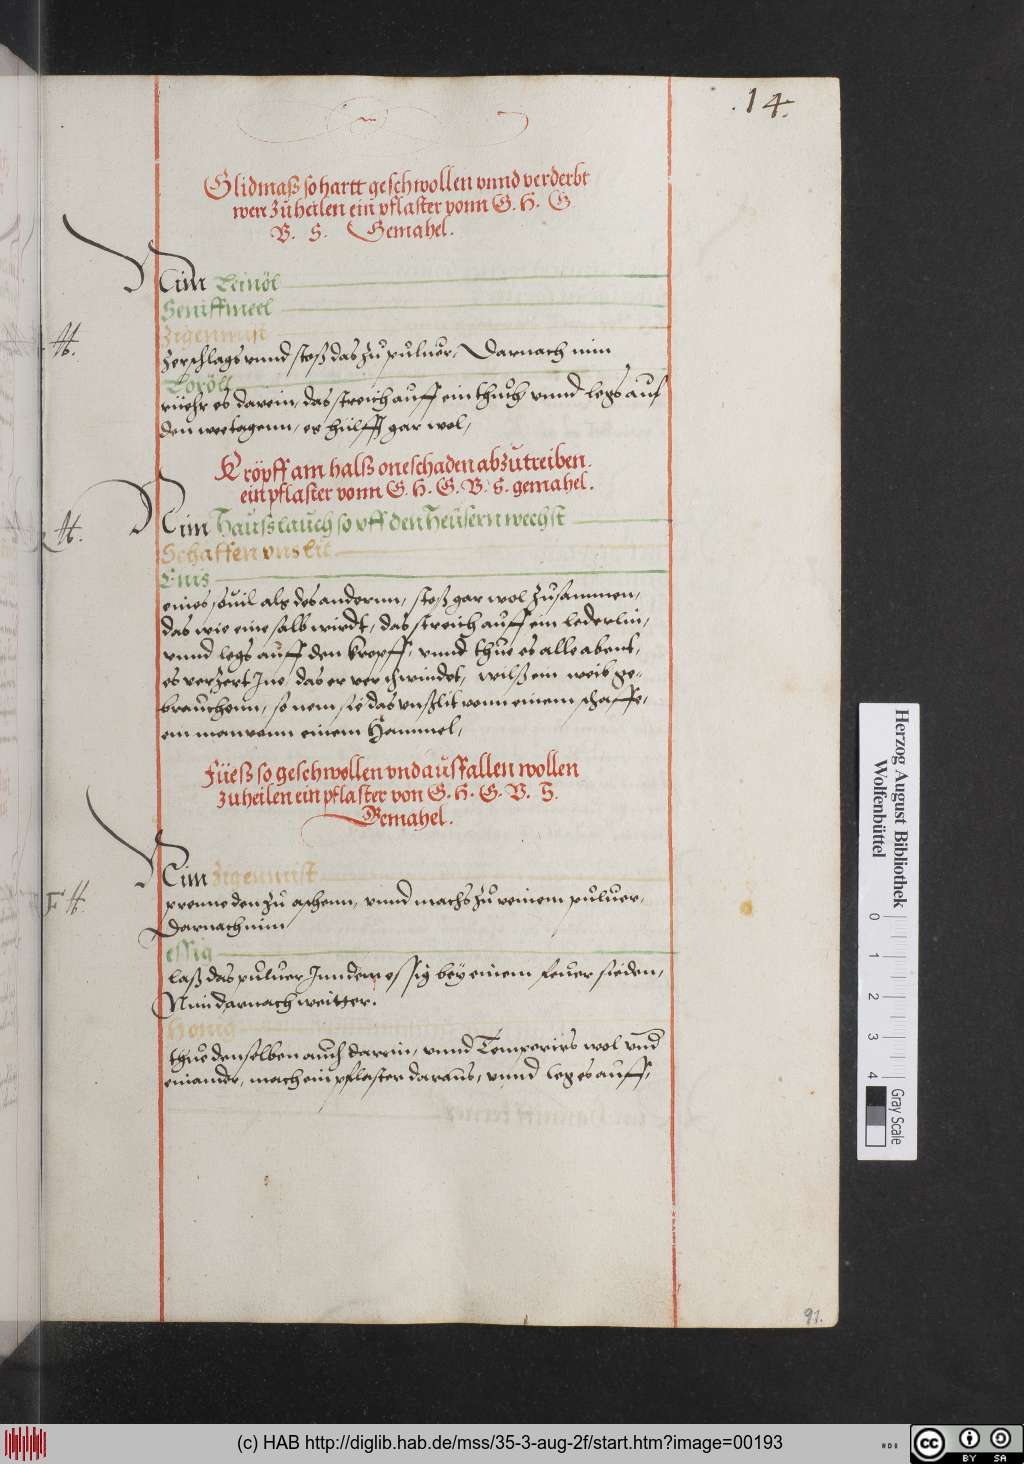 .14.
Glidmaß so hartt geschwollen vnnd verderbt
were zu heilen ein pflaster vonn G. H. G
V. S. Gemahel.
Nim Leinöl
Seniffmeel
Zigenmist
H.
Zerschlags vnnd stoß das zu puluer, Darnach nim
Loröll
rüehr es darein, das streich auff ein thuch vnnd legs auf
den weetagenn, es hülfft gar wol,
Kröpff am halß one schaden abzutreiben.
ein pflaster vonn G. H. G. V. S. gemahel.
H.
Nim Haußlauch so vff den Heusern wechst
Schaffen vnslit
Enis
eines, souil als des andernn, stoß gar wol zusammen,
das wie eine salb wirdt, das streich auff ein lederlin,
vnnd legs auff den kropff, vnnd thue es alle abent,
es verzert Ine das er verschwindet, wilß ein weib ge-
brauchenn, so nem sie das vnßlit vonn einem schaffe,
ein man vonn einem Hammel,
Füeß so geschwollen vnd auffallen wollen
zu heilen ein pflaster von G. H. G. V. S.
Gemahel.
Nim Zigenmist
F H.
prenne den zu aschenn, vnnd machs zu reinem puluer,
Darnach nim
essig
laß das puluer Inn dem essig bey einem feuer sieden,
Nim darnach weitter.
Honig
thue denselben auch darein, vnnd Temperirs wol vnd
einander, mach ein pflaster daraus, vnnd leg es auff,
91.
Herzog August Bibliothek
Wolfenbüttel
0 1 2 3 4
Gray Scale
(c) HAB http://diglib.hab.de/mss/35-3-aug-2f/start.htm?image=00193
cc BY SA